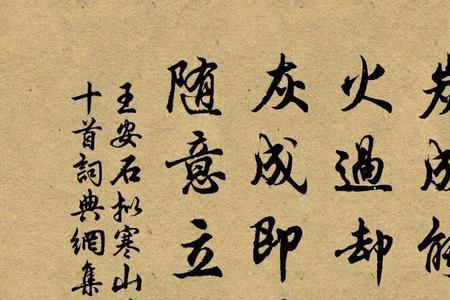 炭成能
火過却
灰成即
随意立
王安石拟寒山
十首詞典網集